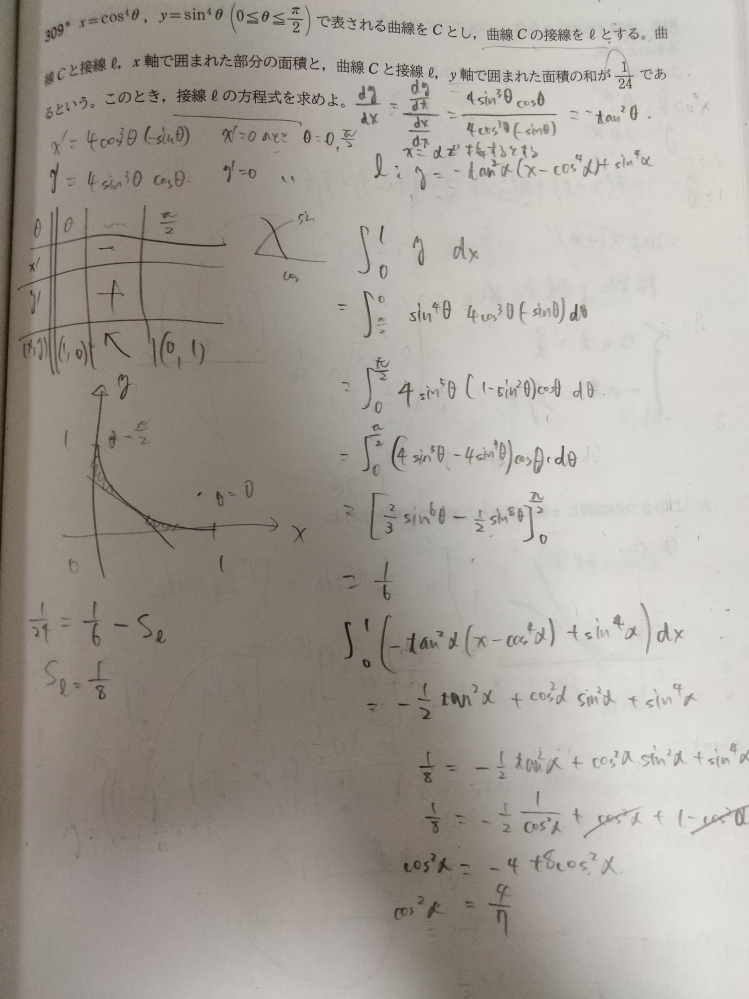 309* x=cos⁴θ, y=sin⁴θ (0≦θ≦π/2) で表される曲線をCとし，曲線Cの接線をℓとする。曲
線Cと接線ℓ，x軸で囲まれた部分の面積と，曲線Cと接線ℓ，y軸で囲まれた面積の和が 1/24 であ
るという。このとき，接線ℓの方程式を求めよ。
dy/dx = (dy/dπ)/(dx/dπ) = 4sin³θcosθ / 4cos³θ(-sinθ) = -tan²θ.
x' = 4cos³θ(-sinθ) x'=0 θ=0, π/2
y' = 4sin³θ cosθ. y'=0 〃
x=αで接するとする
ℓ: y = -tan²α(x-cos⁴α)+sin⁴α
θ 0 … π/2
x' -
y' +
(x,y) (1,0) ↖ (0,1)
sin
cos
∫₀¹ y dx
= ∫_{π/2}^{0} sin⁴θ 4cos³θ(-sinθ)dθ
= ∫₀^{π/2} 4sin⁵θ(1-sin²θ)cosθ dθ.
= ∫₀^{π/2} (4sin⁵θ-4sin⁷θ)cosθ dθ
= [2/3 sin⁶θ - 1/2 sin⁸θ]₀^{π/2}
= 1/6
y
1
θ=π/2
θ=0
x
0
1
1/24 = 1/6 - Sℓ
Sℓ = 1/8
∫₀¹ (-tan²α(x-cos⁴α)+sin⁴α)dx
= -1/2 tan²α + cos²α sin²α + sin⁴α
1/8 = -1/2 tan²α + cos²α sin²α + sin⁴α
1/8 = -1/2 1/cos²α + cos²α + 1-cos²α
cos²α = -4 + 8cos²α.
cos²α = 4/7